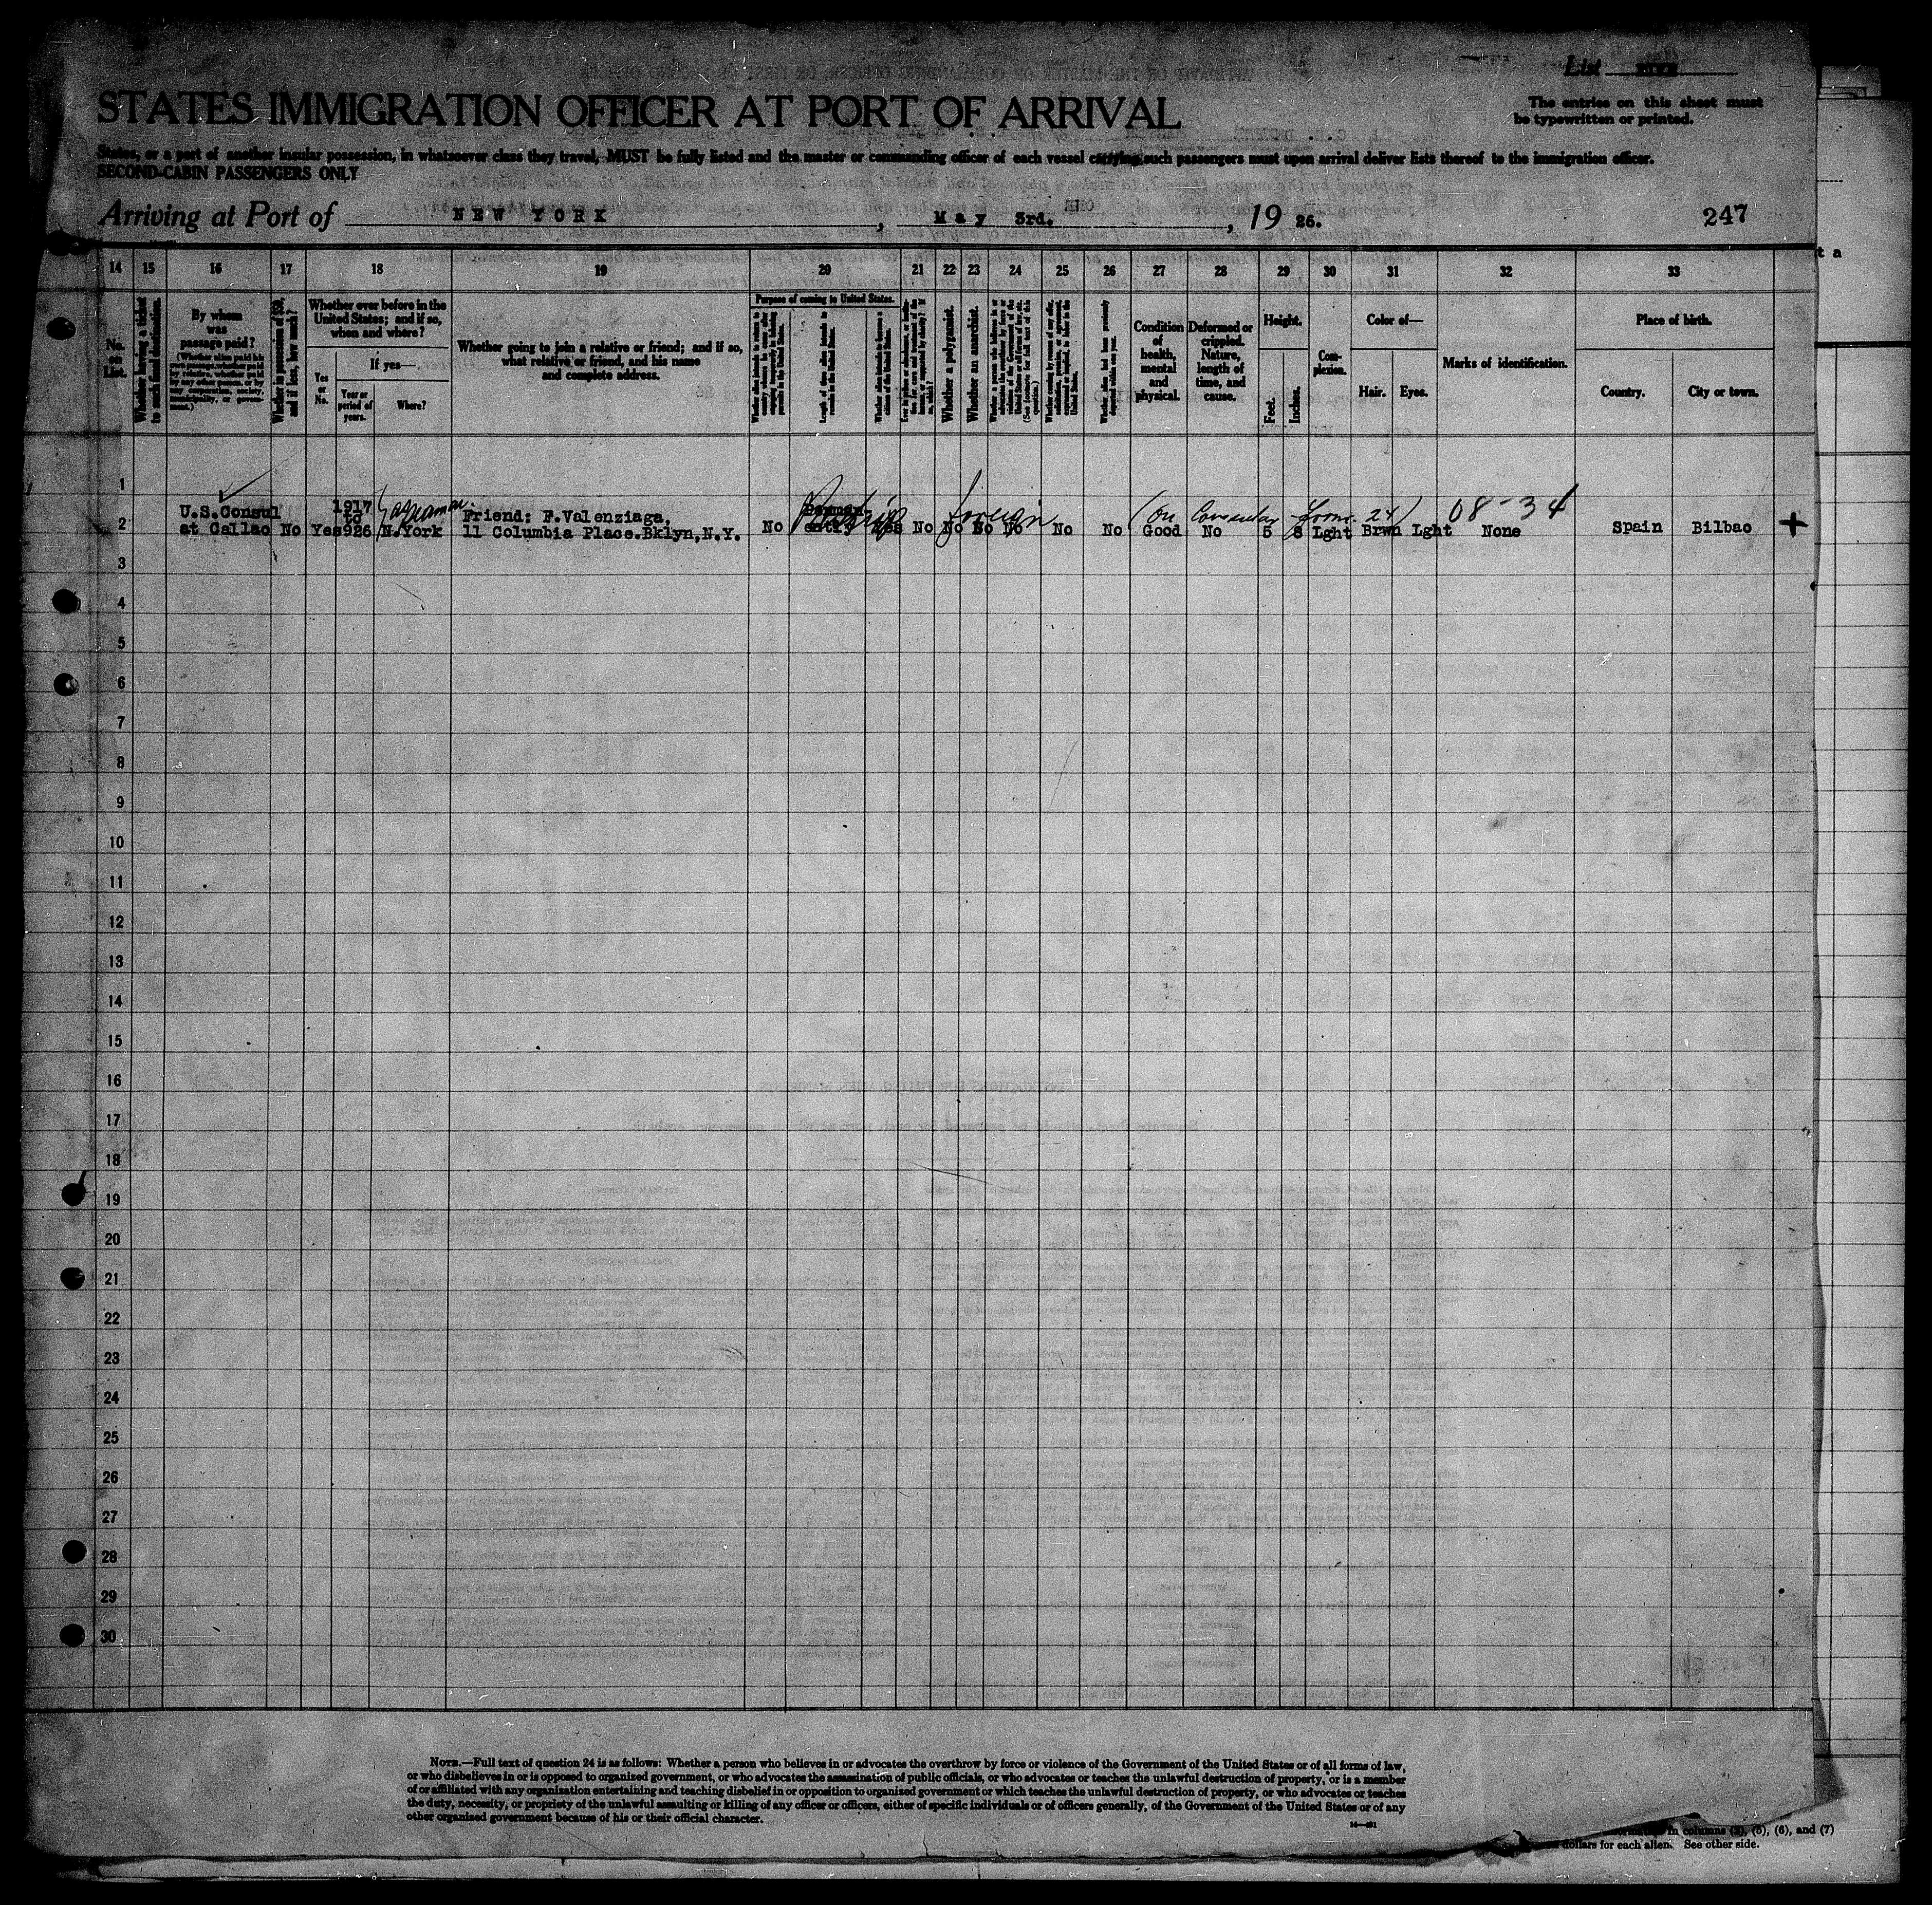 List FIVE
The entries on this sheet must
be typewritten or printed.
STATES IMMIGRATION OFFICER AT PORT OF ARRIVAL
States, or a part of another insular possession, in whatsoever class they travel, MUST be fully listed and the master or commanding officer of each vessel carrying such passengers must upon arrival deliver lists thereof to the immigration officer.
SECOND-CABIN PASSENGERS ONLY
Arriving at Port of NEW YORK, May 3rd., 19 26.
247
14 15 16 17 18 19 20 21 22 23 24 25 26 27 28 29 30 31 32 33
No.
on
List.
Whether having a ticket
to such final destination.
By whom
was
passage paid?
(Whether alien paid his
own passage, whether paid
by relative, whether paid
by any other person, or by
any corporation, society,
municipality, or govern-
ment.)
Whether in possession of $50,
and if less, how much?
Whether ever before in the
United States; and if so,
when and where?
Yes
or
No.
If yes—
Year or
period of
years.
Where?
Whether going to join a relative or friend; and if so,
what relative or friend, and his name
and complete address.
Purpose of coming to United States.
Length of time alien intends to
remain in the United States.
Whether alien intends to become a
citizen of the United States.
Whether a polygamist.
Whether an anarchist.
Whether alien had been previously
deported within one year.
Condition
of
health,
mental
and
physical.
Deformed or
crippled.
Nature,
length of
time, and
cause.
Height.
Feet.
Inches.
Com-
plexion.
Color of—
Hair.
Eyes.
Marks of identification.
Place of birth.
Country.
City or town.
1
2
U.S.Consul
at Callao
No
Yes
1917
to
926
N.York
Friend: F.Valenziaga.
11 Columbia Place.Bklyn,N.Y.
No
No No No No No No
(on Consular
Good No 5 8 Lght Brwn Lght
08-34
None
Spain Bilbao
+
3
4
5
6
7
8
9
10
11
12
13
14
15
16
17
18
19
20
21
22
23
24
25
26
27
28
29
30
NOTE.—Full text of question 24 is as follows: Whether a person who believes in or advocates the overthrow by force or violence of the Government of the United States or of all forms of law,
or who disbelieves in or is opposed to organized government, or who advocates the assassination of public officials, or who advocates or teaches the unlawful destruction of property, or is a member
of or affiliated with any organization entertaining and teaching disbelief in or opposition to organized government or which teaches the unlawful destruction of property, or who advocates or teaches
the duty, necessity, or propriety of the unlawful assaulting or killing of any officer or officers, either of specific individuals or of officers generally, of the Government of the United States or of any
other organized government because of his or their official character.
in columns (2), (5), (6), and (7)
dollars for each alien. See other side.